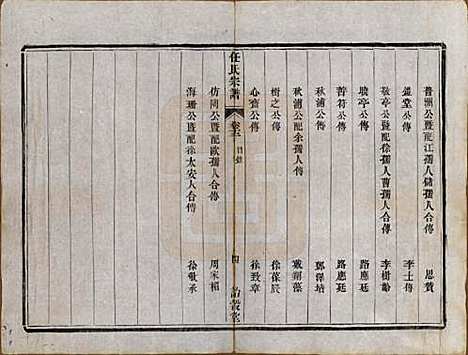 晉淵公暨配江孺人儲孺人合傳 恩贊
盛堂公傳 李士傳
敬亭公暨配徐孺人曹孺人合傳 李樹齡
駿亭公傳 路應廷
普符公傳 路應廷
秋浦公傳 鄧澤培
秋浦公配余孺人傳 戴翊藻
樹之公傳 徐葆辰
心齋公傳 徐致章
任氏宗譜 卷三 目錄 四
仿岡公暨配歐孺人合傳 周家楣
海珊公暨配徐太安人合傳 徐敬承